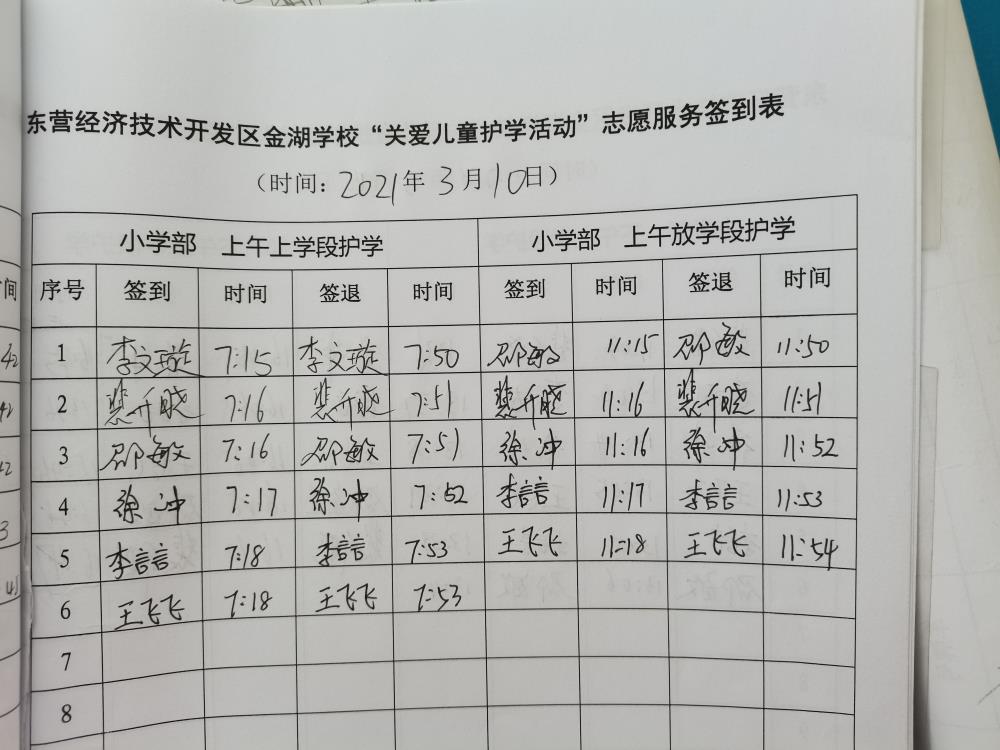 东营经济技术开发区金湖学校“关爱儿童护学活动”志愿服务签到表
（时间：2021年 3月10日）
小学部 上午上学段护学 小学部 上午放学段护学
序号 签到 时间 签退 时间 签到 时间 签退 时间
1 李文璇 7:15 李文璇 7:50 邵敏 11:15 邵敏 11:50
2 裴千晓 7:16 裴千晓 7:51 裴千晓 11:16 裴千晓 11:51
3 邵敏 7:16 邵敏 7:51 徐冲 11:16 徐冲 11:52
4 徐冲 7:17 徐冲 7:52 李言言 11:17 李言言 11:53
5 李言言 7:18 李言言 7:53 王飞飞 11:18 王飞飞 11:54
6 王飞飞 7:18 王飞飞 7:53
7
8